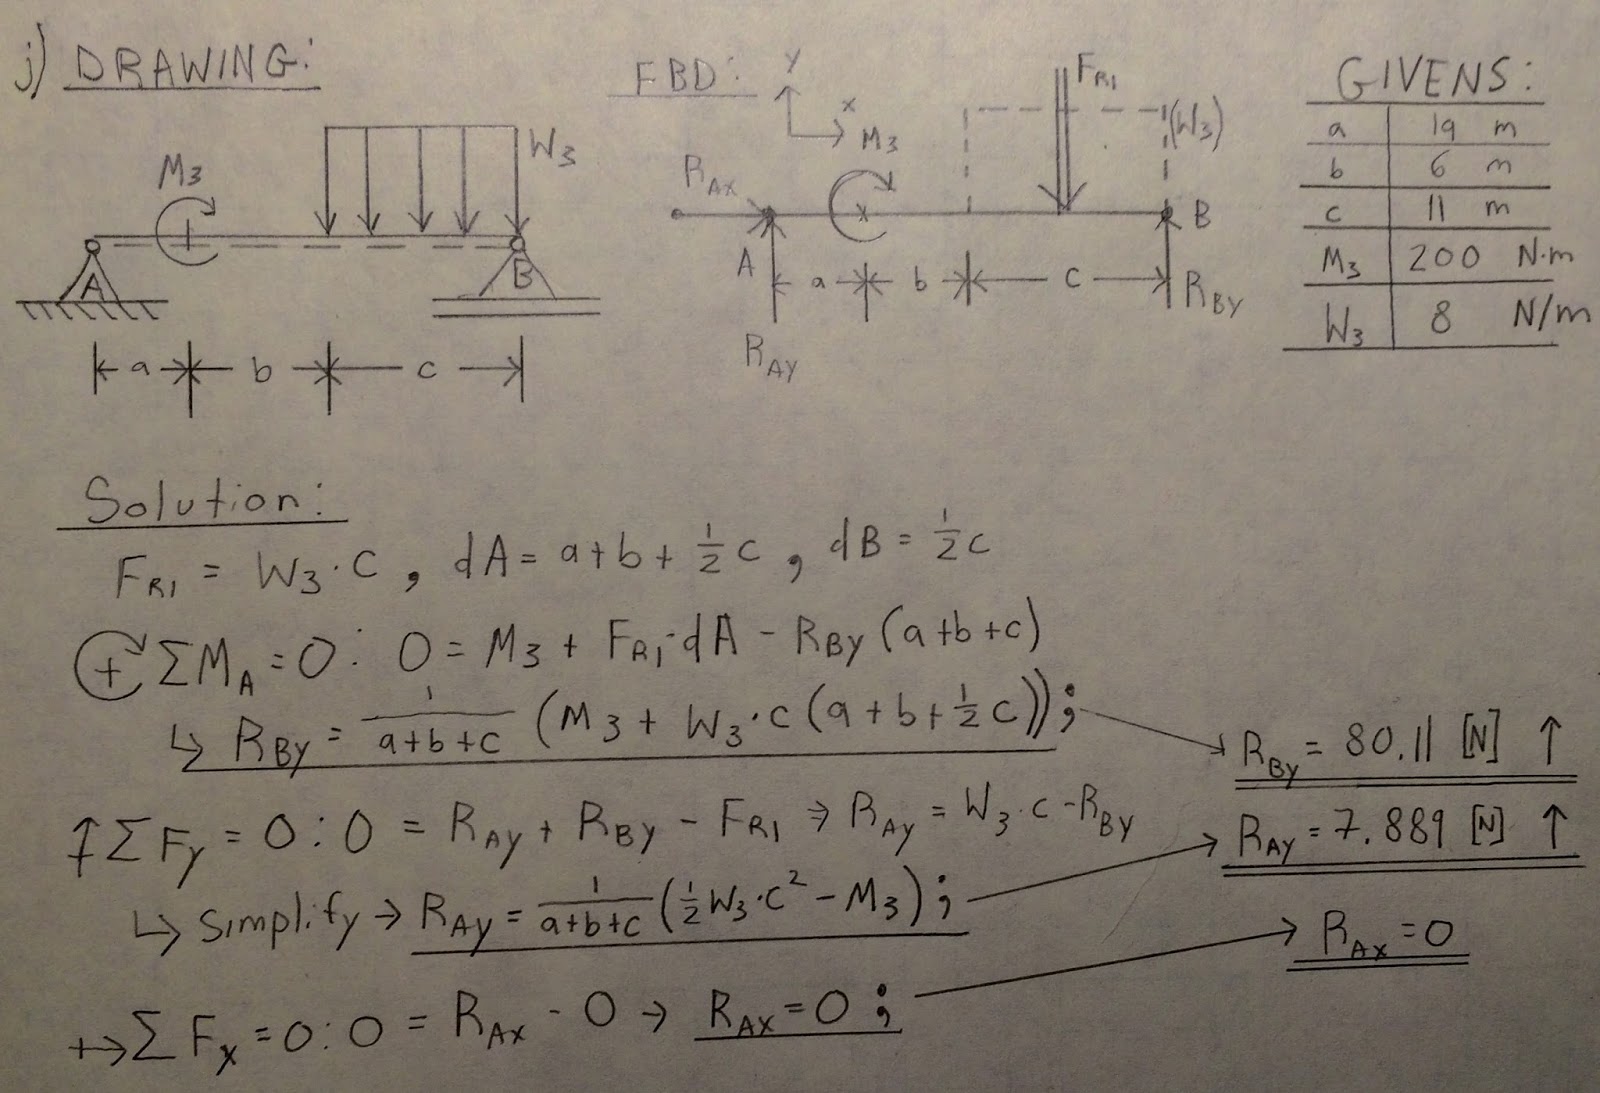 j) DRAWING:
M3
W3
A
B
a
b
c
FBD:
Y
X
FR1
(W3)
M3
RAX
A
B
a
b
c
RAY
RBY
GIVENS:
a 19 m
b 6 m
c 11 m
M3 200 N·m
W3 8 N/m
Solution:
FR1 = W3·C, dA = a+b+½c, dB = ½c
+ ΣMA = 0: 0 = M3 + FR1·dA - RBY (a+b+c)
↳ RBY = 1/(a+b+c) (M3 + W3·C (a+b+½c));
→ RBY = 80.11 [N] ↑
↑ΣFY = 0: 0 = RAY + RBY - FR1 → RAY = W3·C - RBY
→ RAY = 7.889 [N] ↑
↳ Simplify → RAY = 1/(a+b+c) (½W3·C² - M3);
→ RAX = 0
+→ ΣFX = 0: 0 = RAX - 0 → RAX = 0;